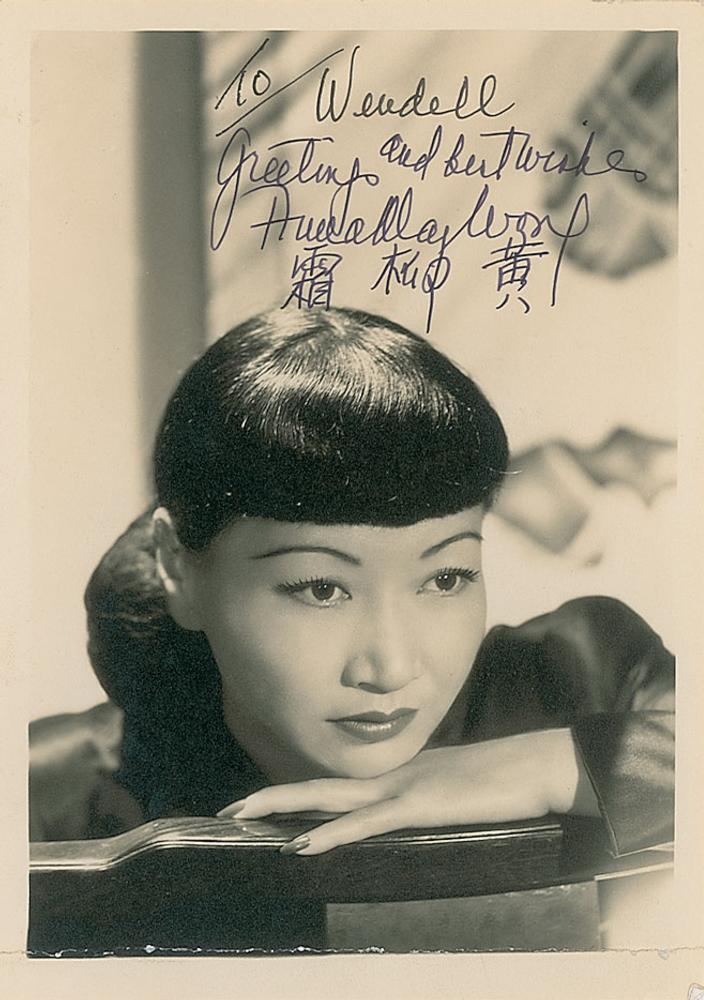 To Wendell
Greetings and best wishes
Anna May Wong
霜 柳 黄